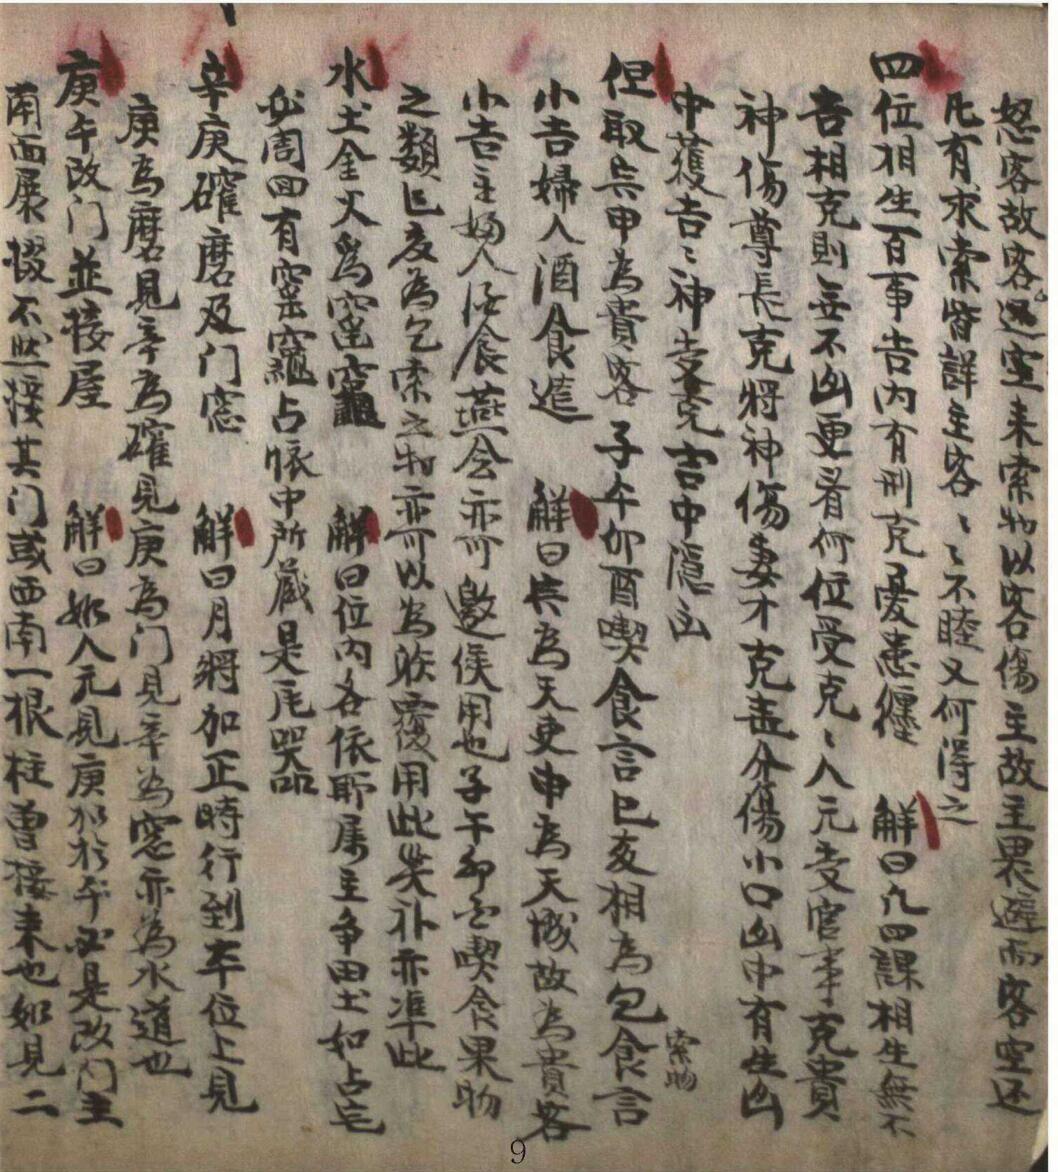 怒客故客還空来索物以客伤主故主畏避而客空还
凡有求索皆詳主客〻〻不睦又何淂之
四位相生百事吉内有刑克憂患纏　解曰凡四課相生無不
吉相克則無不凶更看何位受克〻人元受官事克貴
神傷尊長克将神傷妻才克盖分傷小口凶中有生凶
中獲吉〻神受克吉中隱凶
但取庚申為貴客子午卯酉喫食言巳亥相為乞食言
索物
小吉婦人酒食造　解曰庚為天更申為天城故為貴客
小吉主婦人酒食燕会亦可邀侯用也子午卯酉喫食果物
之類巳亥為乞索之物亦可以為用此矣补亦準此
水土金火為窑竈　解曰位内各依所属主争田土如占宅
必周回有窑竈占懐中所蔵是瓦器
辛庚碓磨及门窓　解曰月將加正時行到本位上見
庚為磨見辛為碓見庚為门見辛為窓亦為水道也
庚午改门並接屋　解曰如人元見庚加於午必是改门主
南西屋不然接其门或西南一根柱曽接来也如見二
9